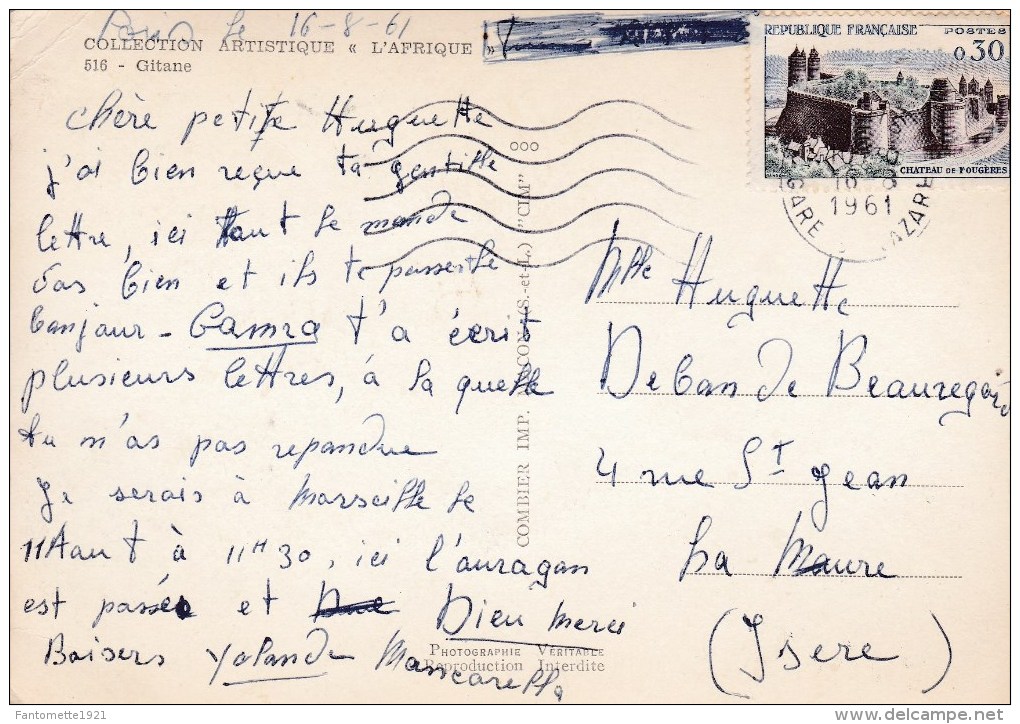 Paris le 16-8-61
COLLECTION ARTISTIQUE « L'AFRIQUE »
516 - Gitane
REPUBLIQUE FRANÇAISE POSTES
0,30
CHATEAU DE FOUGÈRES
GARE AZARE
16 8
1961
Chère petite Huguette
j'ai bien reçue ta gentille
lettre, ici tout le monde
vas bien et ils te passent le
bonjour - t'a écrit
plusieurs lettres, à la quelle
tu n'as pas repondue
Je serais à Marseille le
11 Aout à 11H30, ici l'ouragan
est passée et Dieu merci
Baisers Yolande Mancarella
COMBIER IMP. MACON (S.-et-L.) "CIM"
PHOTOGRAPHIE VÉRITABLE
Reproduction Interdite
Mlle Huguette
Deban de Beauregard
4 rue St Jean
La Mure
(Isere)
Fantomette1921
delcampe.net